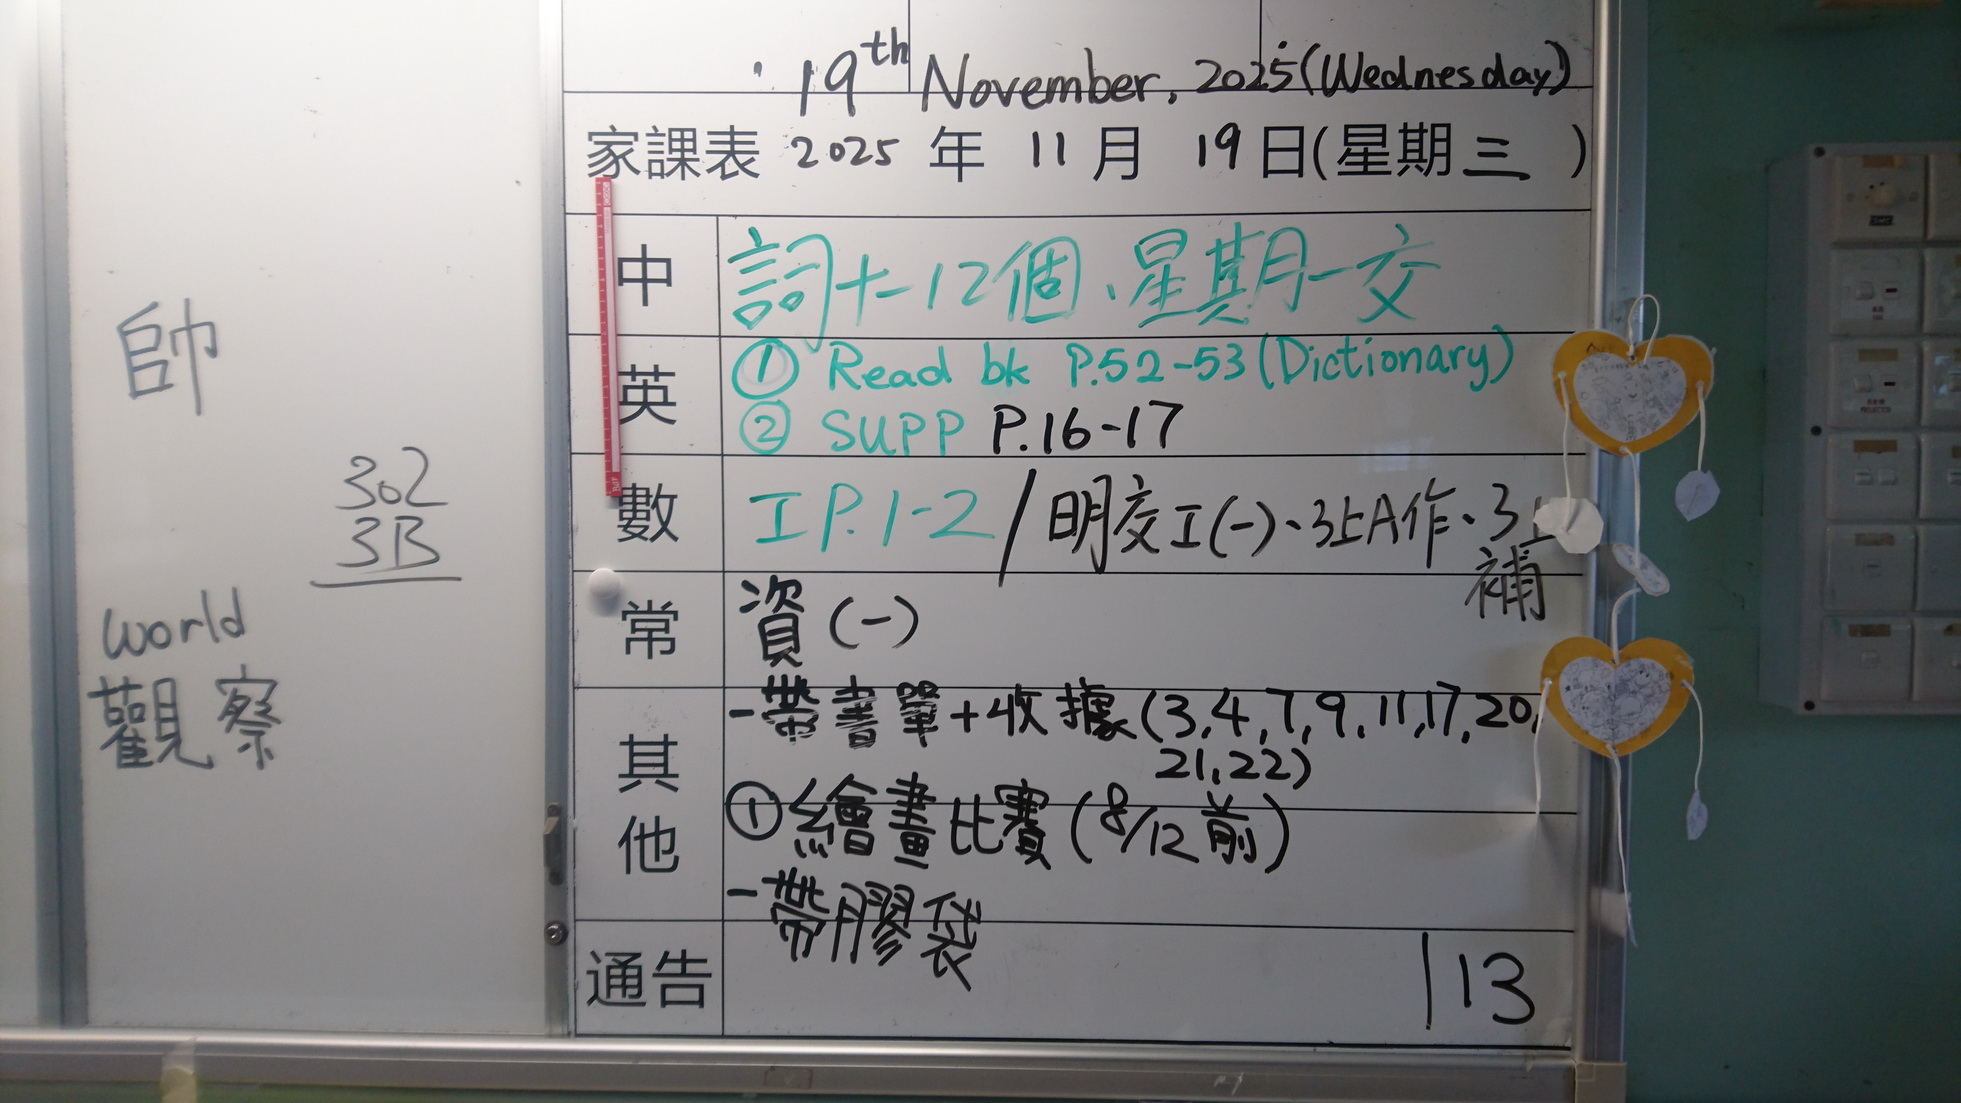 帥
302
3B
world
觀察
19th November, 2025 (Wednesday)
家課表 2025 年 11 月 19 日(星期三)
中
詞十一12個、星期一交
英
① Read bk P.52-53 (Dictionary)
② SUPP P.16-17
數
工P.1-2 / 明交工(一)、3上A作、3上
補
常
資(一)
其他
-帶書單+收據(3,4,7,9,11,17,20,
21,22)
①繪畫比賽(8/12前)
-帶膠袋
通告
|13